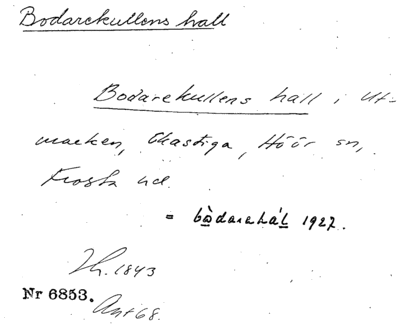 Bodarekullens hall
Bodarekullens hall i Ut-
marken, Ekastiga, Höör sn,
Frosta hd.
= bòdarahál 1927.
Th. 1843
Nr 6853.
Ant 68.